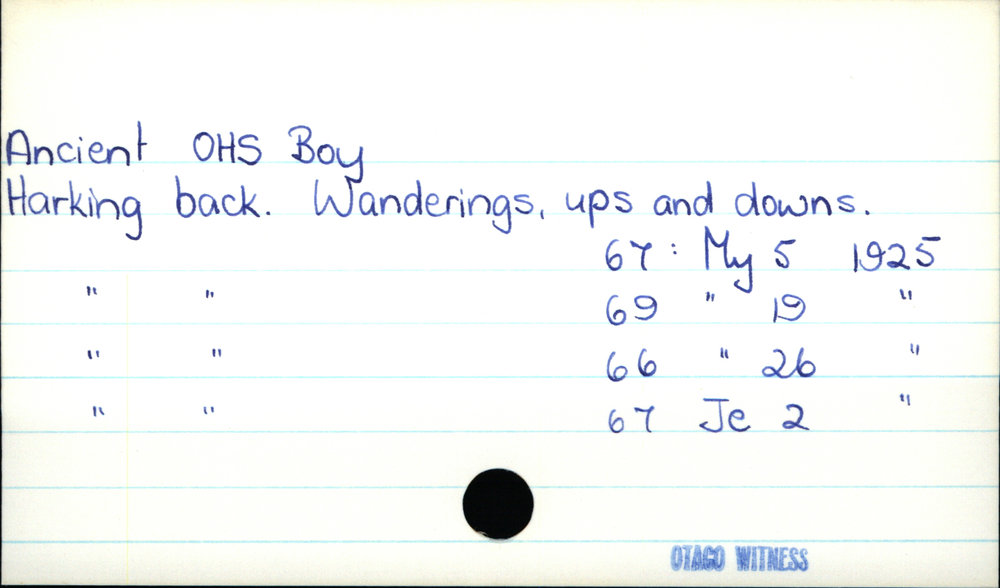 Ancient OHS Boy
Harking back. Wanderings, ups and downs.
67 : My 5 1925
" " 69 " 19 "
" " 66 " 26 "
" " 67 Je 2 "
OTAGO WITNESS